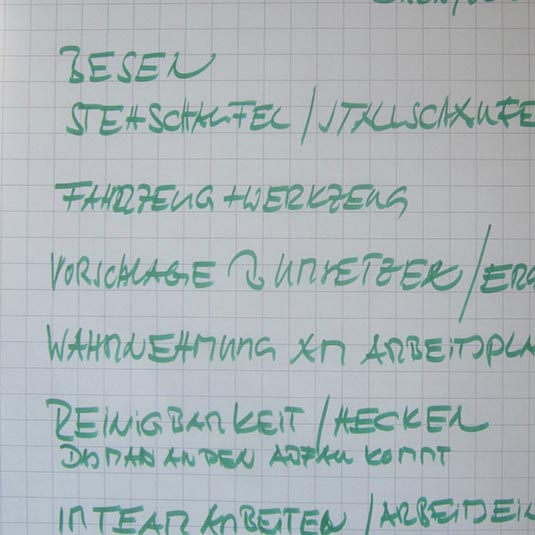 BESEN
STEHSCHAUFEL / STALLSCHAUFE
FAHRZEUG + WERKZEUG
VORSCHLÄGE UMSETZER / ERG
WAHRNEHMUNG AM ARBEITSPLA
REINIGBARKEIT / HECKEN
DAS MAN AN DEN KOMMT
IN TEAM ARBEITEN / ARBEITSEIN